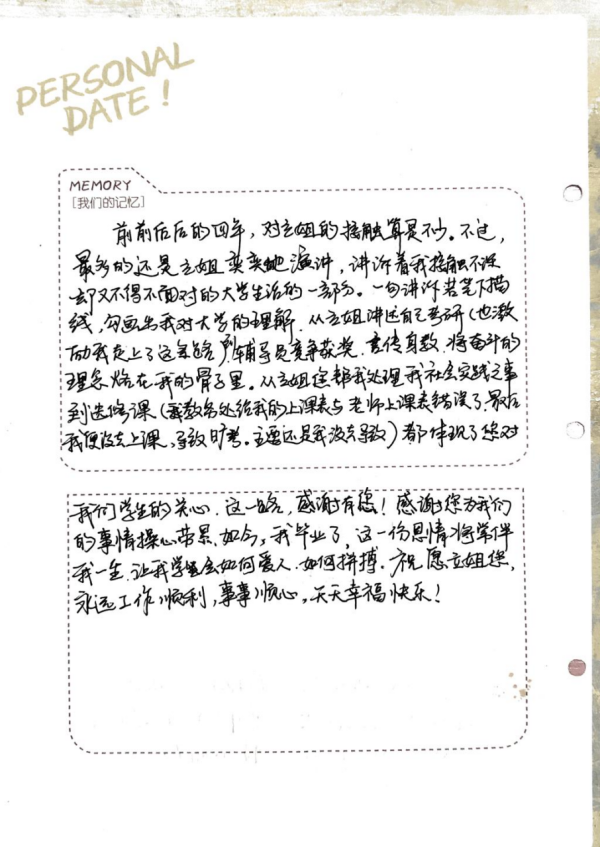 PERSONAL
DATE!
MEMORY
[我们的记忆]
前前后后的四年，对立姐的接触算是不少。不过，
最多的还是立姐娈娈地演讲，讲诉着我接触不深
却又不得不面对的大学生活的一部分。一句讲诉若笔下描
线，勾画出我对大学的理解。从立姐讲述自己考研（也激
励我走上了这条路）到辅导员竞争获奖，言传身教，将奋斗的
理念烙在我的骨子里。从立姐帮我处理我社会实践之事
到选修课（教务处给我的上课表与老师上课表错误了，最后
我便没去上课，导致旷考。主要还是我没去导致）都体现了您对
我们学生的关心。这一路，感谢有您！感谢您为我们
的事情操心劳累。如今，我毕业了，这一份恩情将常伴
我一生，让我学会如何爱人，如何拼搏。祝愿立姐您，
永远工作顺利，事事顺心，天天幸福快乐！